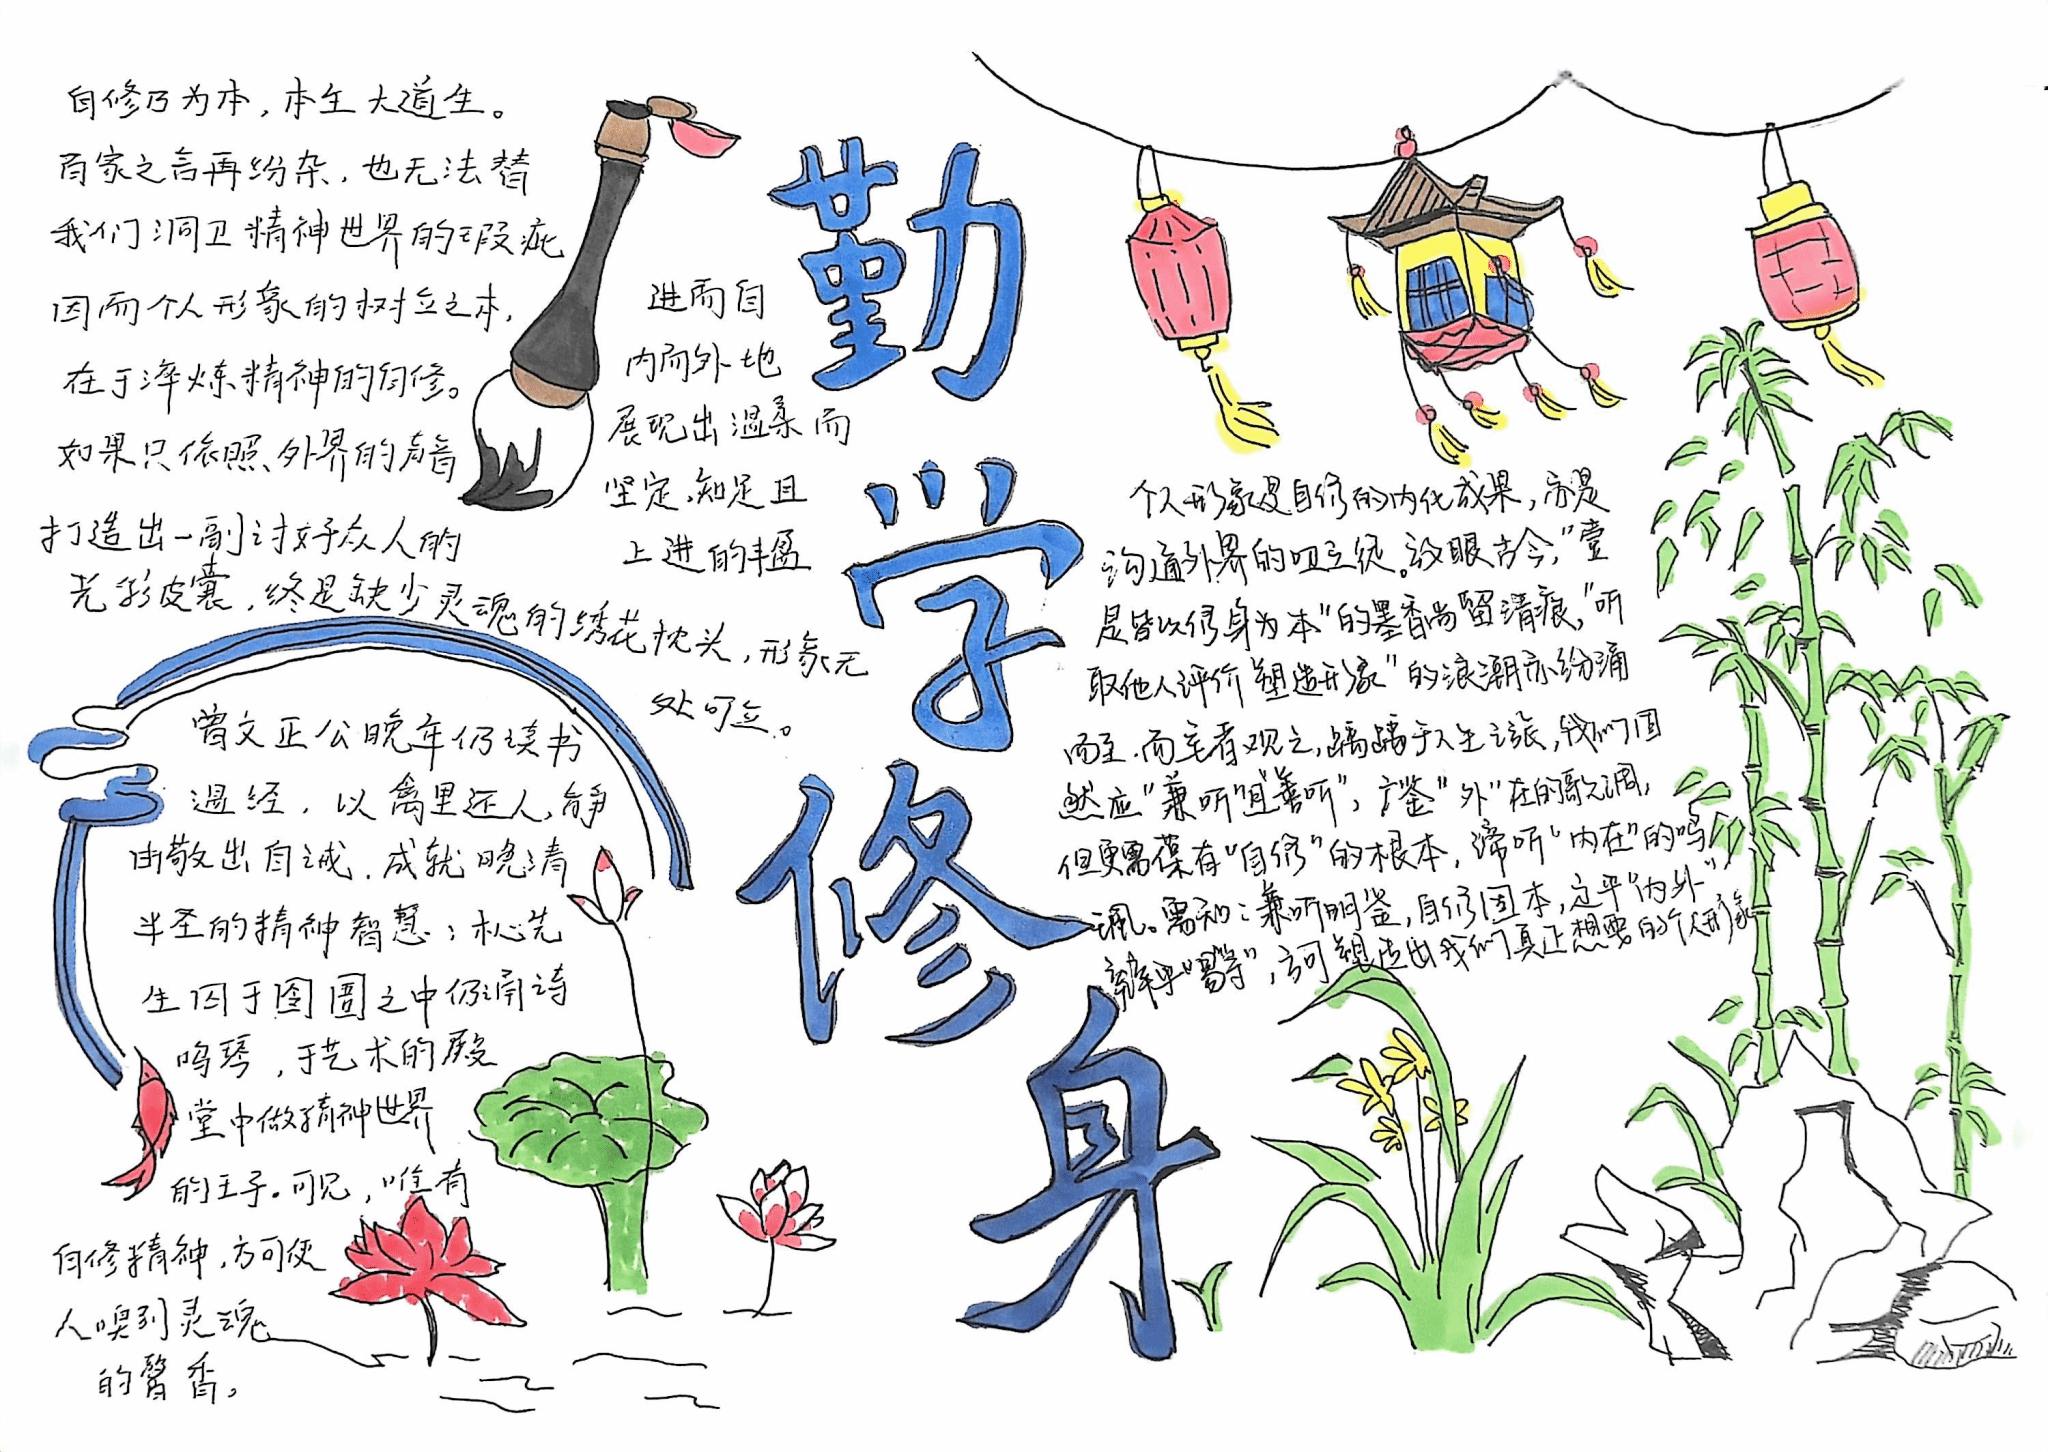 自修乃为本，本生大道生。
百家之言再纷杂，也无法替
我们洞卫精神世界的瑕疵
因而个人形象的树立之本，
在于淬炼精神的自修。
如果只依照外界的声音
打造出一副讨好众人的
光彩皮囊，终是缺少灵魂的绣花枕头，形象无
处可立。
进而自
内而外地
展现出温柔而
坚定、知足且
上进的丰盈
勤学修身
曾文正公晚年仍读书
温经，以禽里还人，静
由敬出自诚，成就晚清
半圣的精神智慧；松先
生囚于囹圄之中仍诵诗
鸣琴，于艺术的殿
堂中做精神世界
的王子。可见，唯有
自修精神，方可使
人嗅到灵魂
的馨香。
个人形象是自修的内化成果，亦是
沟通外界的。放眼古今，“壹
是皆以修身为本”的墨香尚留清痕，“听
取他人评价塑造形象”的浪潮亦纷涌
而至，而笔者观之，踽踽于人生之旅，我们固
然应“兼听”且“善听”，广鉴“外”在的歌调，
但更需葆有“自修”的根本，谛听“内在”的鸣
。需知：兼听明鉴，自修固本，定平“内外”，
方可塑造出我们真正想要的个人形象